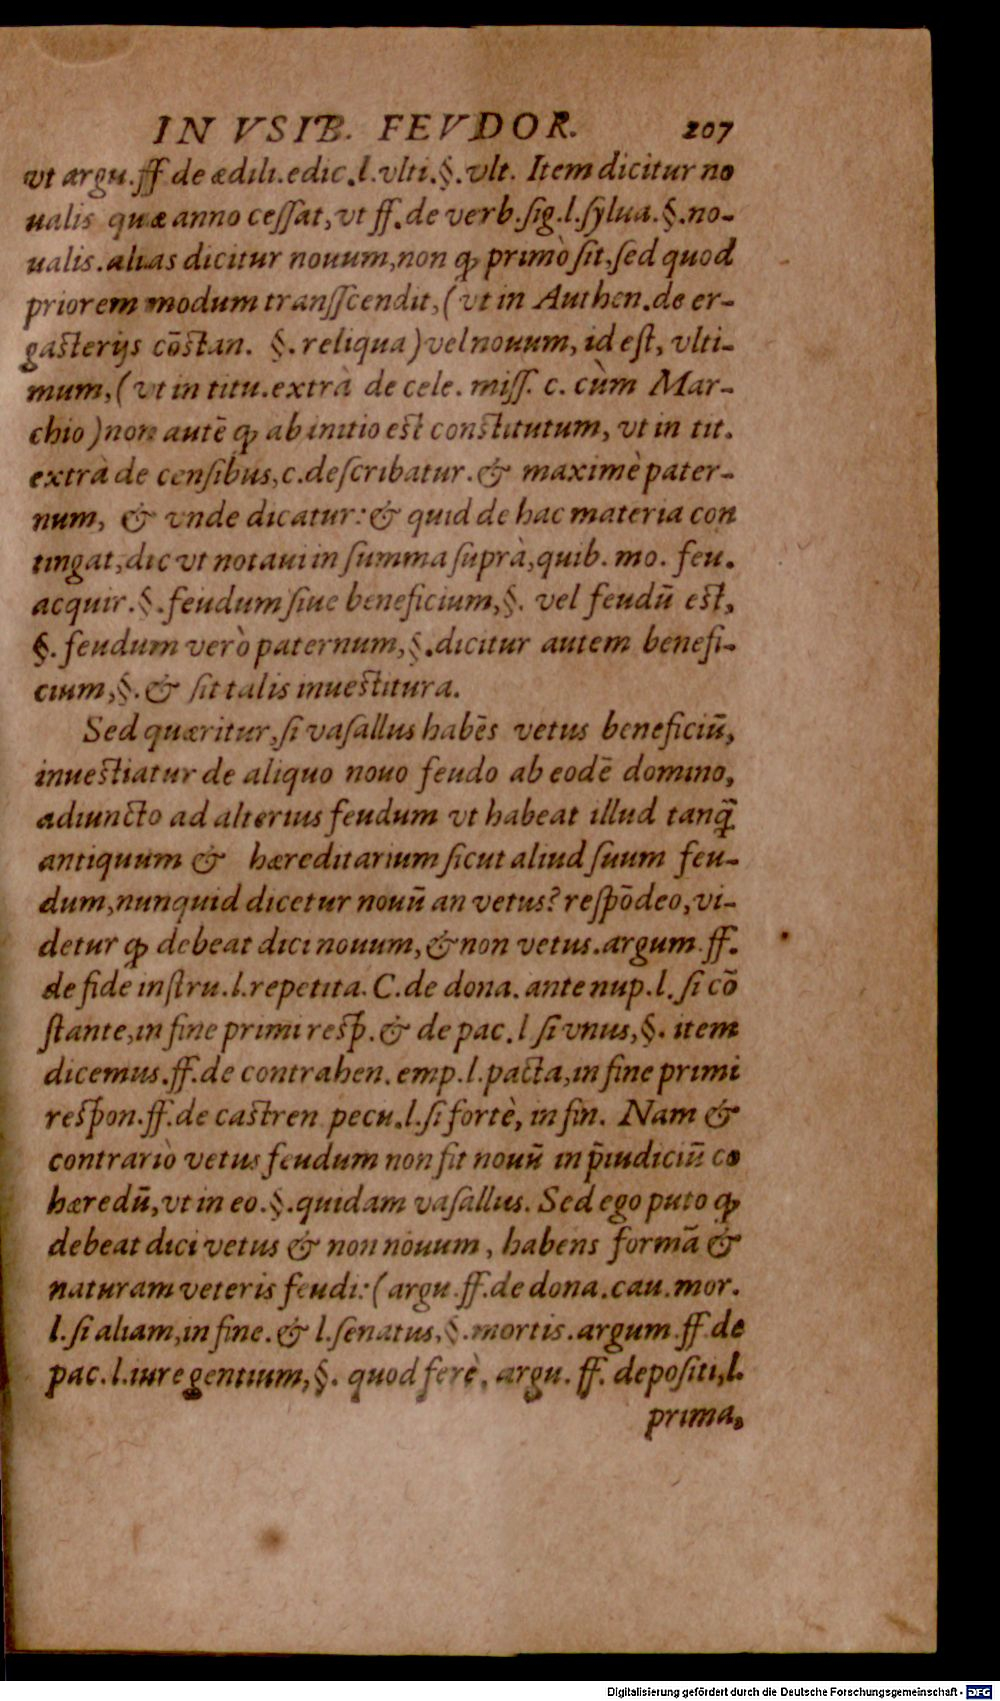 IN VSIB. FEVDOR. 207
vt argu.ff de ædili.edic.l.vlti.§.vlt. Item dicitur no
ualis quæ anno ceſſat, vt ff.de verb.ſig.l.ſylua.§.no-
ualis.alias dicitur nouum,non ꝙ primò ſit,ſed quod
priorem modum tranſſcendit,(vt in Authen.de er-
gasterijs cōstan. §.reliqua)vel nouum, id eſt, vlti-
mum,(vt in titu.extrà de cele. miſſ. c. cùm Mar-
chio)non autē ꝙ ab initio est constitutum, vt in tit.
extrà de cenſibus,c.deſcribatur.& maximè pater-
num, & vnde dicatur:& quid de hac materia con
tingat,dic vt notaui in ſumma ſuprà,quib. mo. feu.
acquir.§.feudum ſiue beneficium,§. vel feudū est,
§.feudum verò paternum,§.dicitur autem benefi-
cium,§.& ſit talis inuestitura.
Sed quæritur,ſi vaſallus habēs vetus beneficiū,
inuestiatur de aliquo nouo feudo ab eodē domino,
adiuncto ad alterius feudum vt habeat illud tanq̃
antiquum & hæreditarium ſicut aliud ſuum feu-
dum,nunquid dicetur nouū an vetus? reſpōdeo,vi-
detur ꝙ debeat dici nouum,& non vetus.argum.ff.
de fide inſtru.l.repetita.C.de dona.ante nup.l.ſi cō
ſtante,in fine primi reſp.& de pac.l ſi vnus,§. item
dicemus.ff.de contrahen.emp.l.pacta,in fine primi
reſpon.ff.de castren pecu.l.ſi fortè, in fin. Nam &
contrariò vetus feudum non fit nouū in p̄iudiciū co
hæredū,vt in eo.§.quidam vaſallus. Sed ego puto ꝙ
debeat dici vetus & non nouum, habens formā &
naturam veteris feudi:(argu.ff.de dona.cau.mor.
l.ſi aliam,in fine.& l.ſenatus,§.mortis.argum.ff.de
pac.l.iure gentium,§. quod ferè, argu. ff. depoſiti,l.
prima,
Digitalisierung gefördert durch die Deutsche Forschungsgemeinschaft - DFG